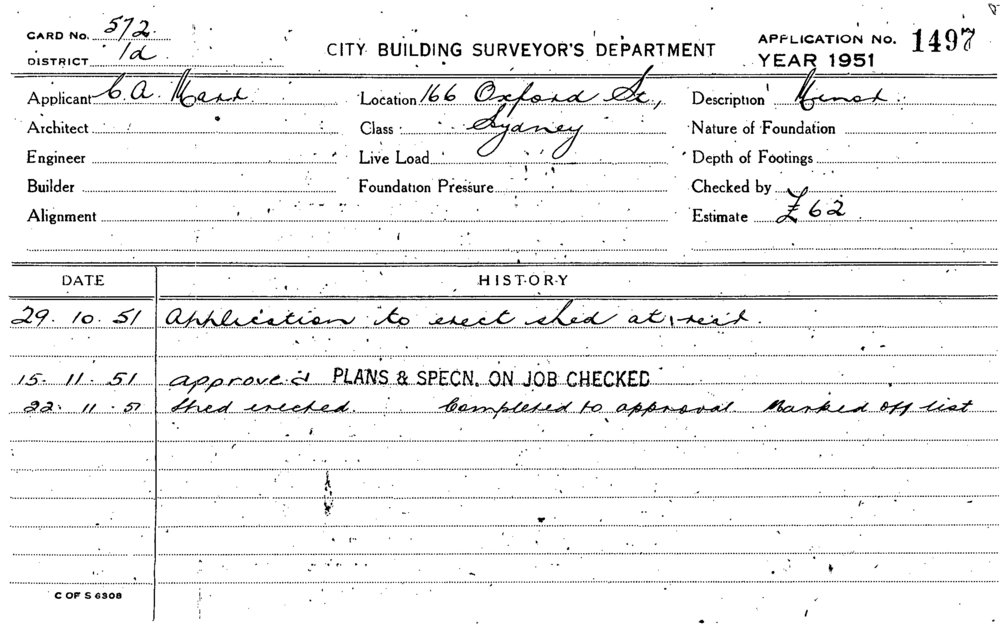 CARD No. 572.
DISTRICT 1d
CITY BUILDING SURVEYOR'S DEPARTMENT
APPLICATION No. 1497
YEAR 1951
Applicant C.A. Location 166 Oxford St., Description Minor
Architect Class Sydney Nature of Foundation
Engineer Live Load Depth of Footings
Builder Foundation Pressure Checked by
Alignment Estimate £62
DATE HISTORY
29.10.51 Application to erect shed at rear.
15.11.51 approved PLANS & SPECN. ON JOB CHECKED
22.11.51 Shed erected. Completed to approval. Marked off list
C OF S 6308